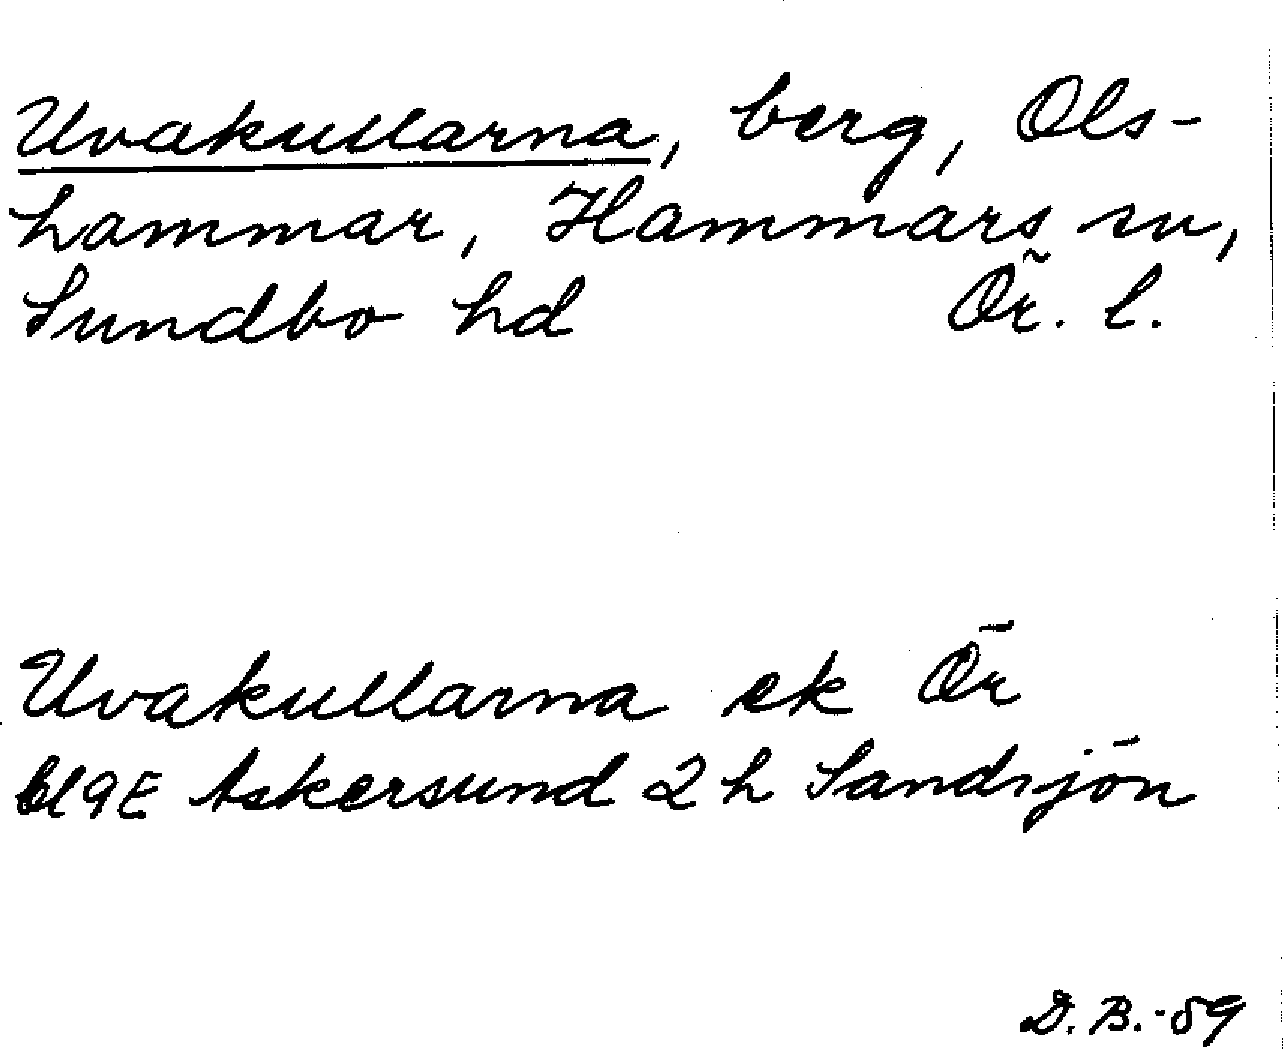 Uvakullarna, berg, Ols-
hammar, Hammars sn,
Sundbo hd Ör. l.
Uvakullarna ek Ör
bl 9E Askersund 2 h Sandsjön
D. B. -59